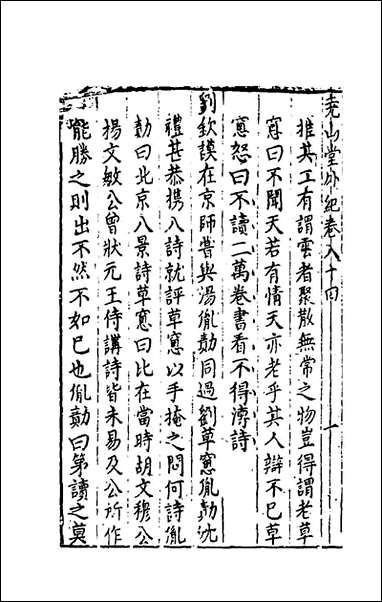 堯山堂外紀卷八十四 一
推其工有謂雲者聚散無常之物豈得謂老草
窻曰不聞天若有情天亦老乎其人辯不已草
窻怒曰不讀二萬卷書看不得溥詩
劉欽謨在京師嘗與湯胤勣同過劉草窻胤勣沈
禮甚恭携八詩就評草窻以手掩之問何詩胤
勣曰北京八景詩草窻曰比在當時胡文穆公
楊文敏公曾狀元王侍講詩皆未易及公所作
能勝之則出不然不如已也胤勣曰第讀之莫